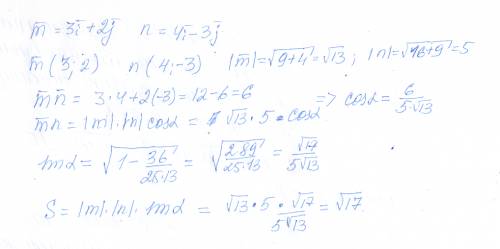 m̅ = 3i̅ + 2j̅   n = 4i̅ - 3j̅
m̅ (3; 2)   n (4; -3)   |m̅| = √9+4 = √13 ; |n| = √16+9 = 5
m̅n̅ = 3·4 + 2(-3) = 12 - 6 = 6   => cosα = 6/5√13
m̅n = |m|·|n| cosα = √13 · 5 · cosα
sinα = √1 - 36/25·13 = √289/25·13 = √17/5√13
S = |m|·|n|· sinα = √13 · 5 · √17/5√13 = √17